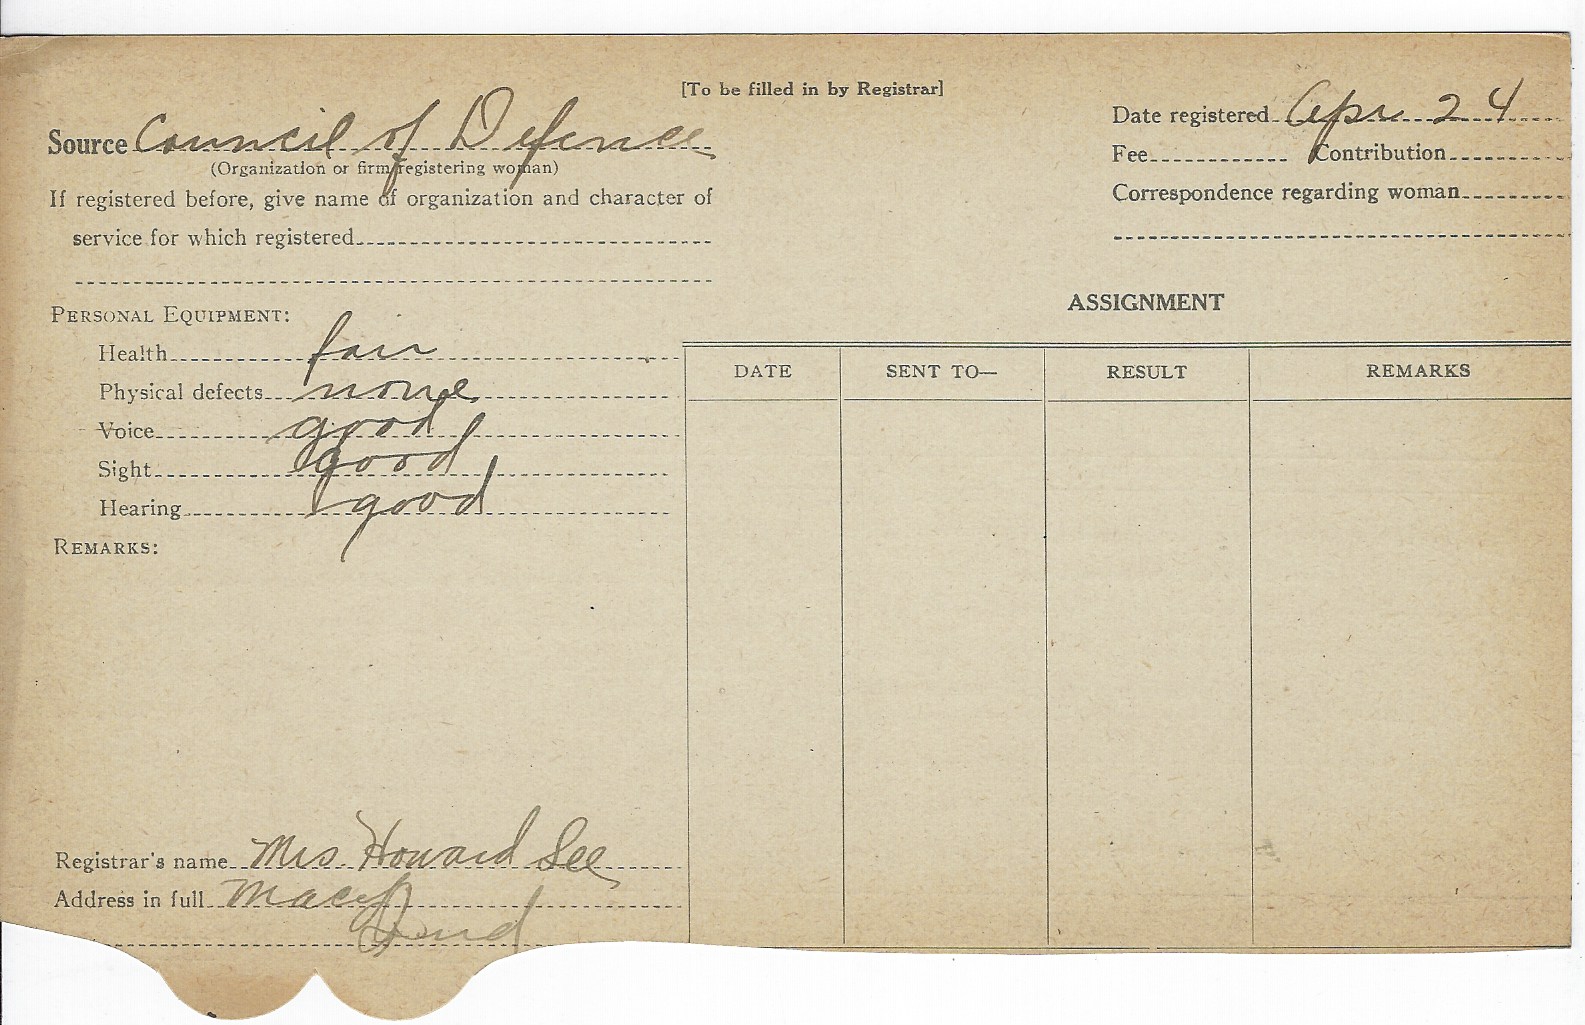 [To be filled in by Registrar]
Source Council of Defence
(Organization or firm registering woman)
If registered before, give name of organization and character of
service for which registered
Date registered Apr 24
Fee Contribution
Correspondence regarding woman
PERSONAL EQUIPMENT:
Health fair
Physical defects none
Voice good
Sight good
Hearing good
REMARKS:
ASSIGNMENT
DATE SENT TO— RESULT REMARKS
Registrar's name Mrs. Howard See
Address in full Macy
Ind